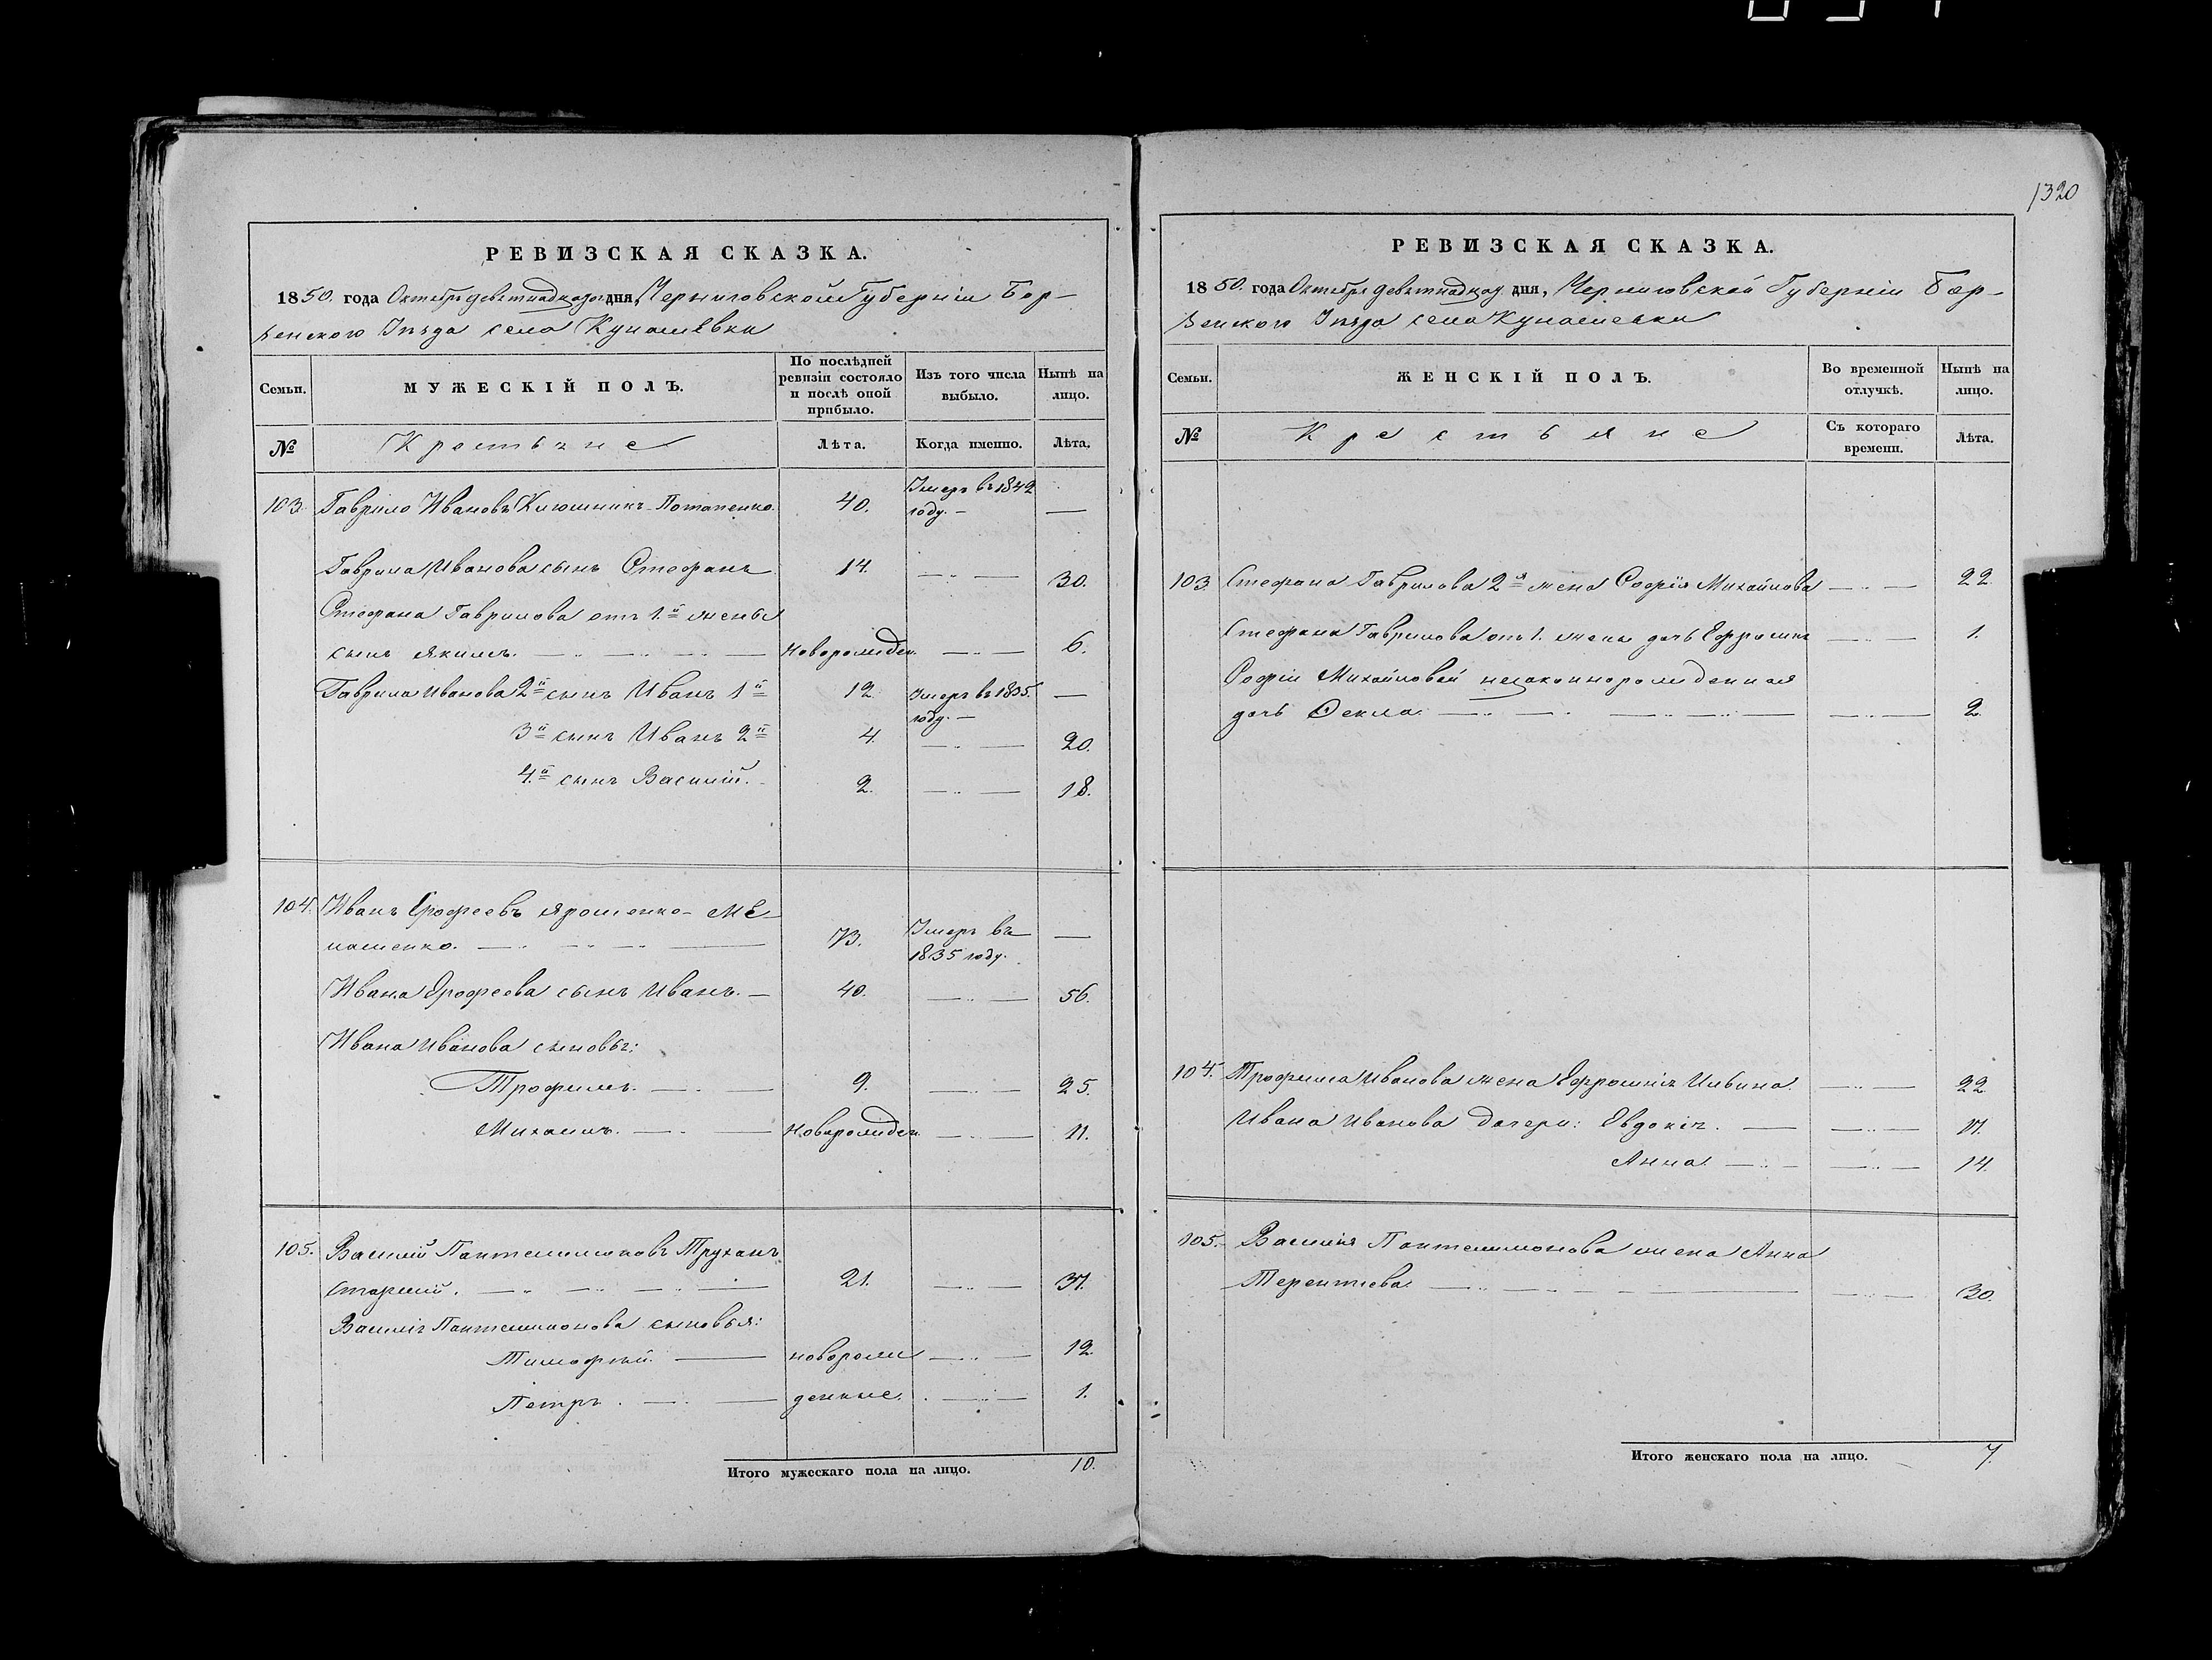 1320
РЕВИЗСКАЯ СКАЗКА.
1850. года Октября девятнадцатого дня, Черниговской Губерніи Бор-
зенского Уѣзда села Кунашевки
Семьи.
МУЖЕСКІЙ ПОЛЪ.
По послѣдней ревизіи состояло и послѣ оной прибыло.
Изъ того числа выбыло.
Нынѣ на лицо.
№
Крестьяне
Лѣта.
Когда именно.
Лѣта.
103. Гаврило Ивановъ Ключникъ-Потапенко. 40. Умеръ въ 1842 —
году. —
Гаврила Иванова сынъ Стефанъ 14. — „ — 30.
Стефана Гаврилова отъ 1.й жены
сынъ Якимъ. — „ — „ — новорожден. — „ — 6.
Гаврила Иванова 2й сынъ Иванъ 1й 12. Умеръ въ 1835. —
году. —
3й сынъ Иванъ 2й 4. — „ — 20.
4.й сынъ Василій. 2. — „ — 18.
104. Иванъ Ерофеевъ Ярошенко-
73. Умеръ въ —
1835 году.
Ивана Ерофеева сынъ Иванъ. — 40. — „ — 56.
Ивана Иванова сыновья:
Трофимъ. — „ — 9. — „ — 25.
Михаилъ. — „ — новорожден. — „ — 11.
105. Василій Пантелимоновъ Труханъ
старшій. — „ — „ — „ — 21. — „ — 37.
Василія Пантелимонова сыновья:
Тимофѣй. — новорож — „ — 12.
Петръ. — „ — денные. — „ — 1.
Итого мужескаго пола на лицо. 10.
РЕВИЗСКАЯ СКАЗКА.
1850. года Октября девятнадцат. дня, Черниговской Губерніи Бор-
зенского Уѣзда села Кунашевки
Семьи.
ЖЕНСКІЙ ПОЛЪ.
Во временной отлучкѣ.
Нынѣ на лицо.
№
Крестьяне
Съ котораго времени.
Лѣта.
103. Стефана Гаврилова 2я жена Софія Михайлова — „ — 22.
Стефана Гаврилова отъ 1. жены дочь — „ — 1.
Софіи Михайловой незаконнорожденная
дочь Фекла. — „ — „ — — „ — 2.
104. Трофима Иванова жена Ефросинія Ильина. — „ — 22.
Ивана Иванова дочери: Евдокія. — — „ — 17.
Анна. — „ — — „ — 14.
105. Василія Пантелимонова жена Анна
Терентіева. — „ — — „ — 30.
Итого женскаго пола на лицо. 7.